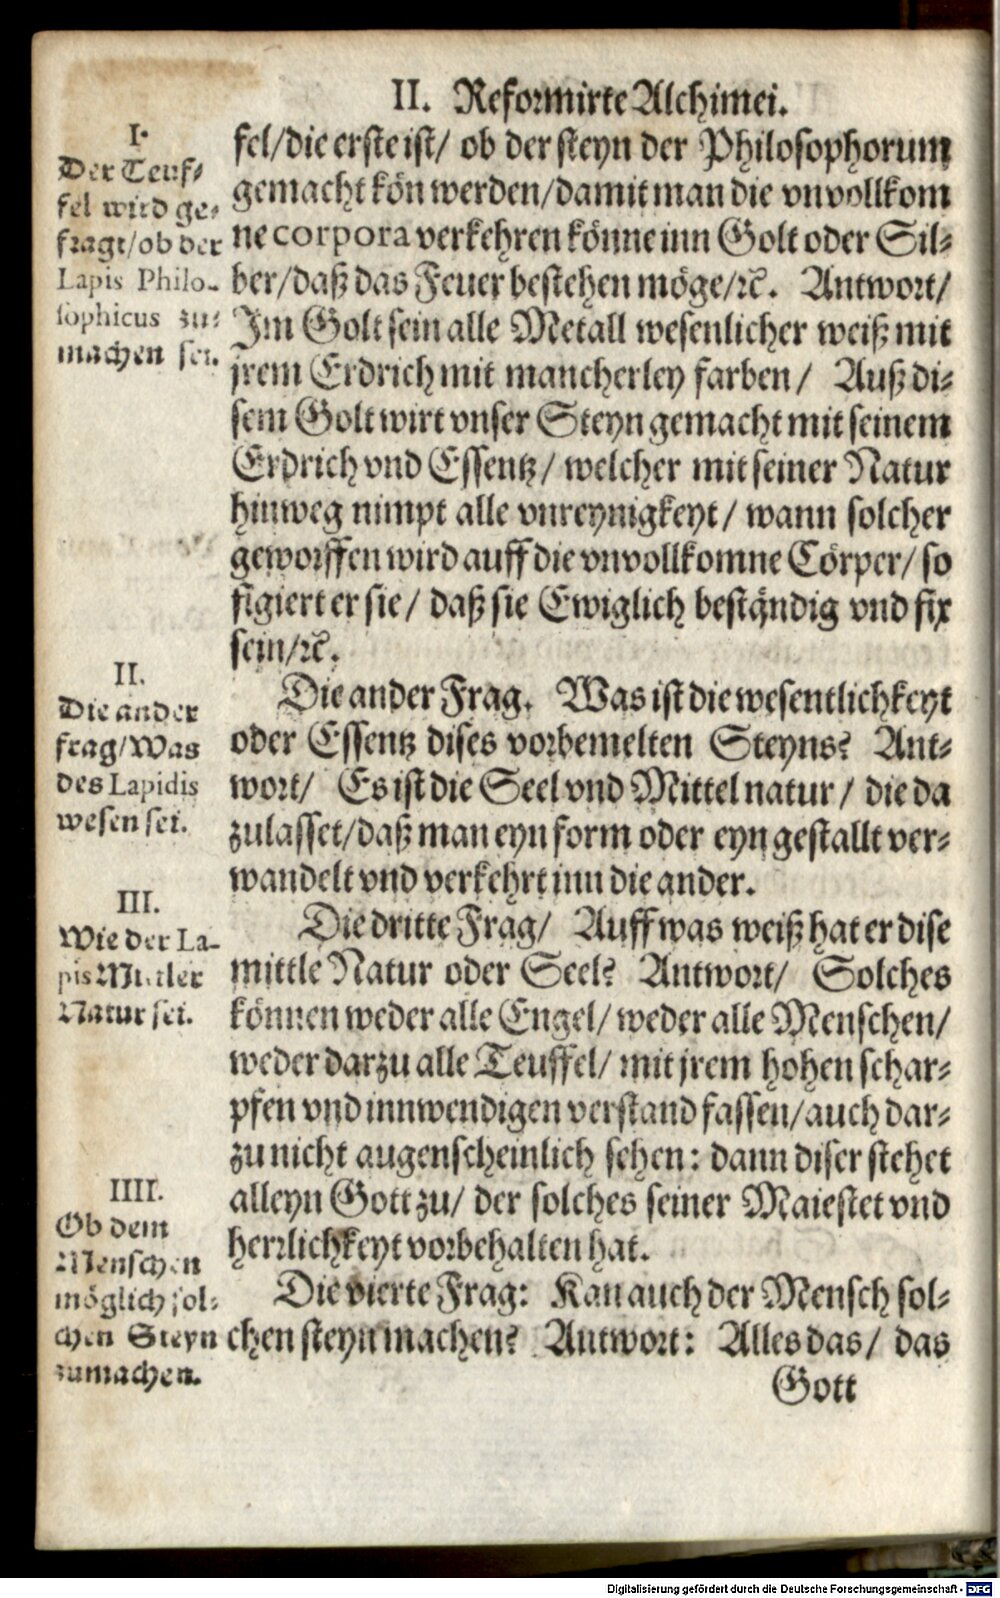 II. Reformirte Alchimei.
I.
Der Teuf⸗
fel wird ge⸗
fragt/ob der
Lapis Philo-
sophicus zu⸗
machen sei.
fel/die erste ist/ ob der steyn der Philosophorum
gemacht kön werden/damit man die vnvollkom
ne corpora verkehren könne inn Golt oder Sil⸗
ber/daß das Feuer bestehen möge/ꝛc̃. Antwort/
Im Golt sein alle Metall wesenlicher weiß mit
jrem Erdrich mit mancherley farben/ Auß di⸗
sem Golt wirt vnser Steyn gemacht mit seinem
Erdrich vnd Essentz/ welcher mit seiner Natur
hinweg nimpt alle vnreynigkeyt/ wann solcher
geworffen wird auff die vnvollkomne Cörper/ so
figiert er sie/ daß sie Ewiglich beständig vnd fix
sein/ꝛc̃.
II.
Die ander
frag/Was
des Lapidis
wesen sei.
Die ander Frag. Was ist die wesentlichkeyt
oder Essentz dises vorbemelten Steyns? Ant⸗
wort/ Es ist die Seel vnd Mittel natur/ die da
zulasset/daß man eyn form oder eyn gestallt ver⸗
wandelt vnd verkehrt inn die ander.
III.
Wie der La-
pis Mittler
Natur sei.
Die dritte Frag/ Auff was weiß hat er dise
mittle Natur oder Seel? Antwort/ Solches
können weder alle Engel/ weder alle Menschen/
weder darzu alle Teuffel/ mit jrem hohen schar⸗
pfen vnd innwendigen verstand fassen/auch dar⸗
zu nicht augenscheinlich sehen: dann diser stehet
alleyn Gott zu/ der solches seiner Maiestet vnd
herrlichkeyt vorbehalten hat.
IIII.
Ob dem
Menschen
möglich sol⸗
chen Steyn
zumachen.
Die vierte Frag: Kan auch der Mensch sol⸗
chen steyn machen? Antwort: Alles das/ das
Gott
Digitalisierung gefördert durch die Deutsche Forschungsgemeinschaft - DFG